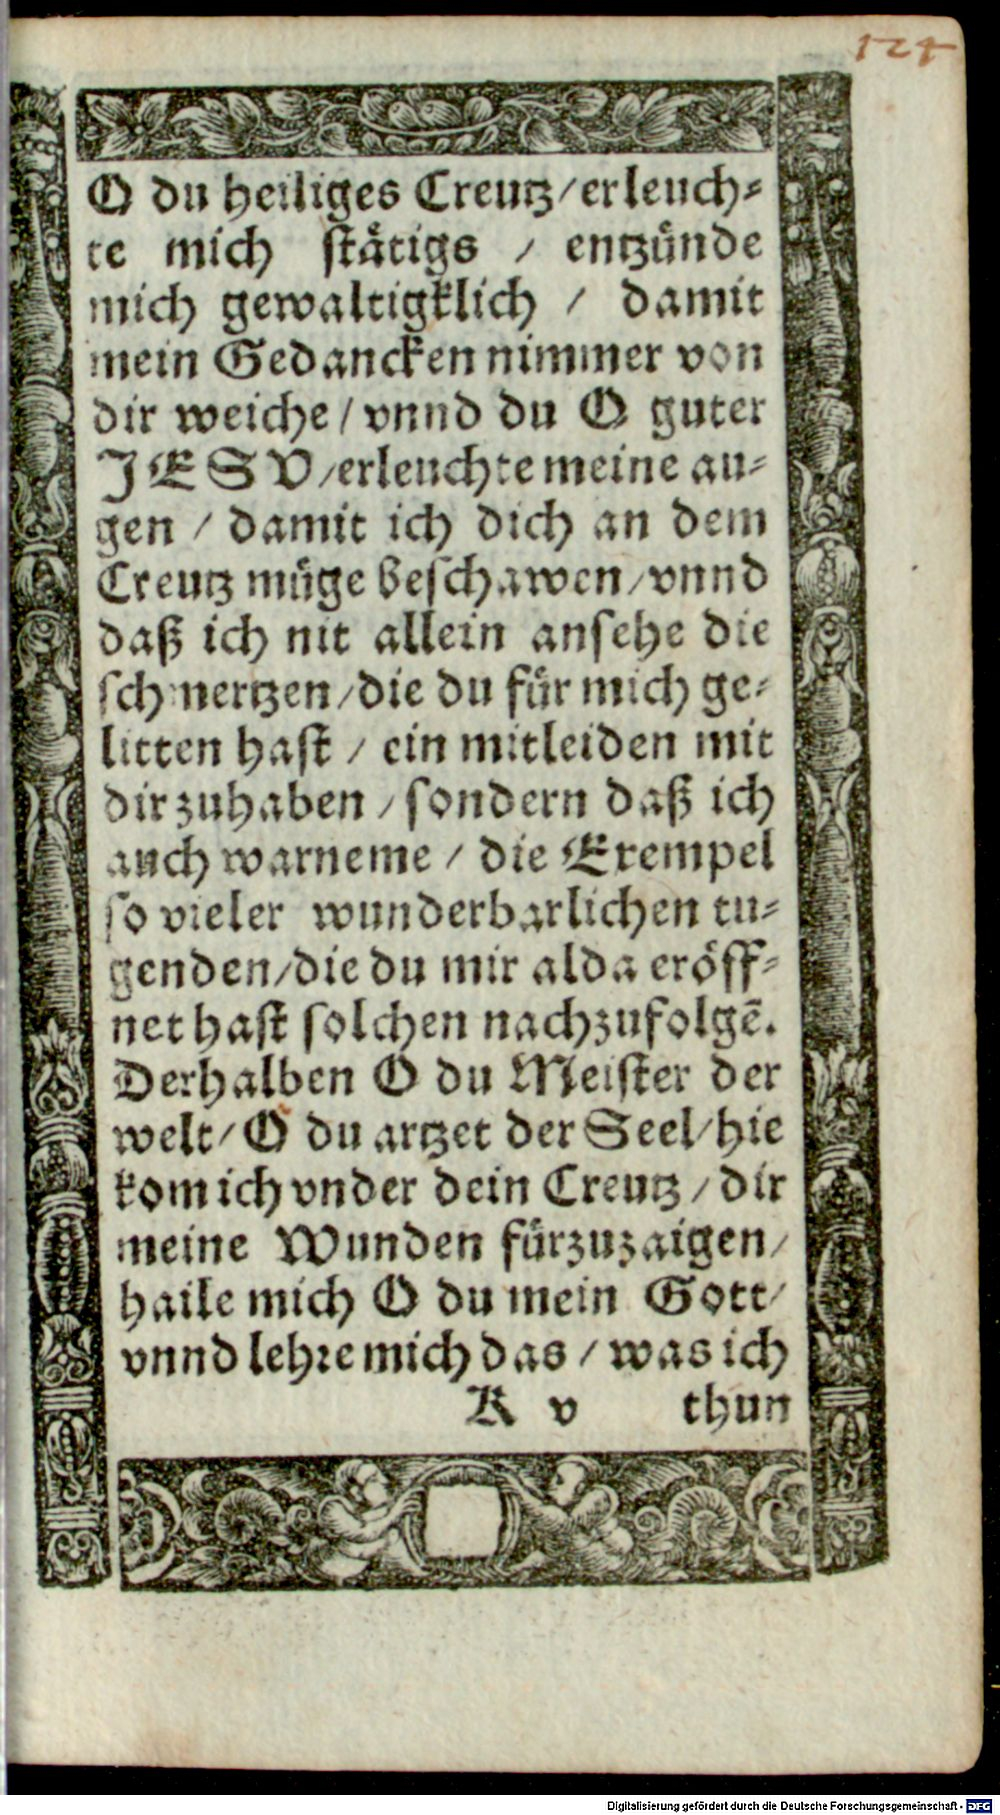 124
O du heiliges Creutz/erleuch-
te mich stätigs / entzünde
mich gewaltigklich / damit
mein Gedancken nimmer von
dir weiche/vnnd du O guter
JESV/erleuchte meine au-
gen / damit ich dich an dem
Creutz müge beschawen/vnnd
daß ich nit allein ansehe die
schmertzen/die du für mich ge-
litten hast / ein mitleiden mit
dir zuhaben / sondern daß ich
auch warneme / die Exempel
so vieler wunderbarlichen tu-
genden/die du mir alda eröff-
net hast solchen nachzufolgē.
Derhalben O du Meister der
welt/O du artzet der Seel/hie
kom ich vnder dein Creutz / dir
meine Wunden fürzuzaigen/
haile mich O du mein Gott/
vnnd lehre mich das / was ich
K v thun
Digitalisierung gefördert durch die Deutsche Forschungsgemeinschaft - DFG